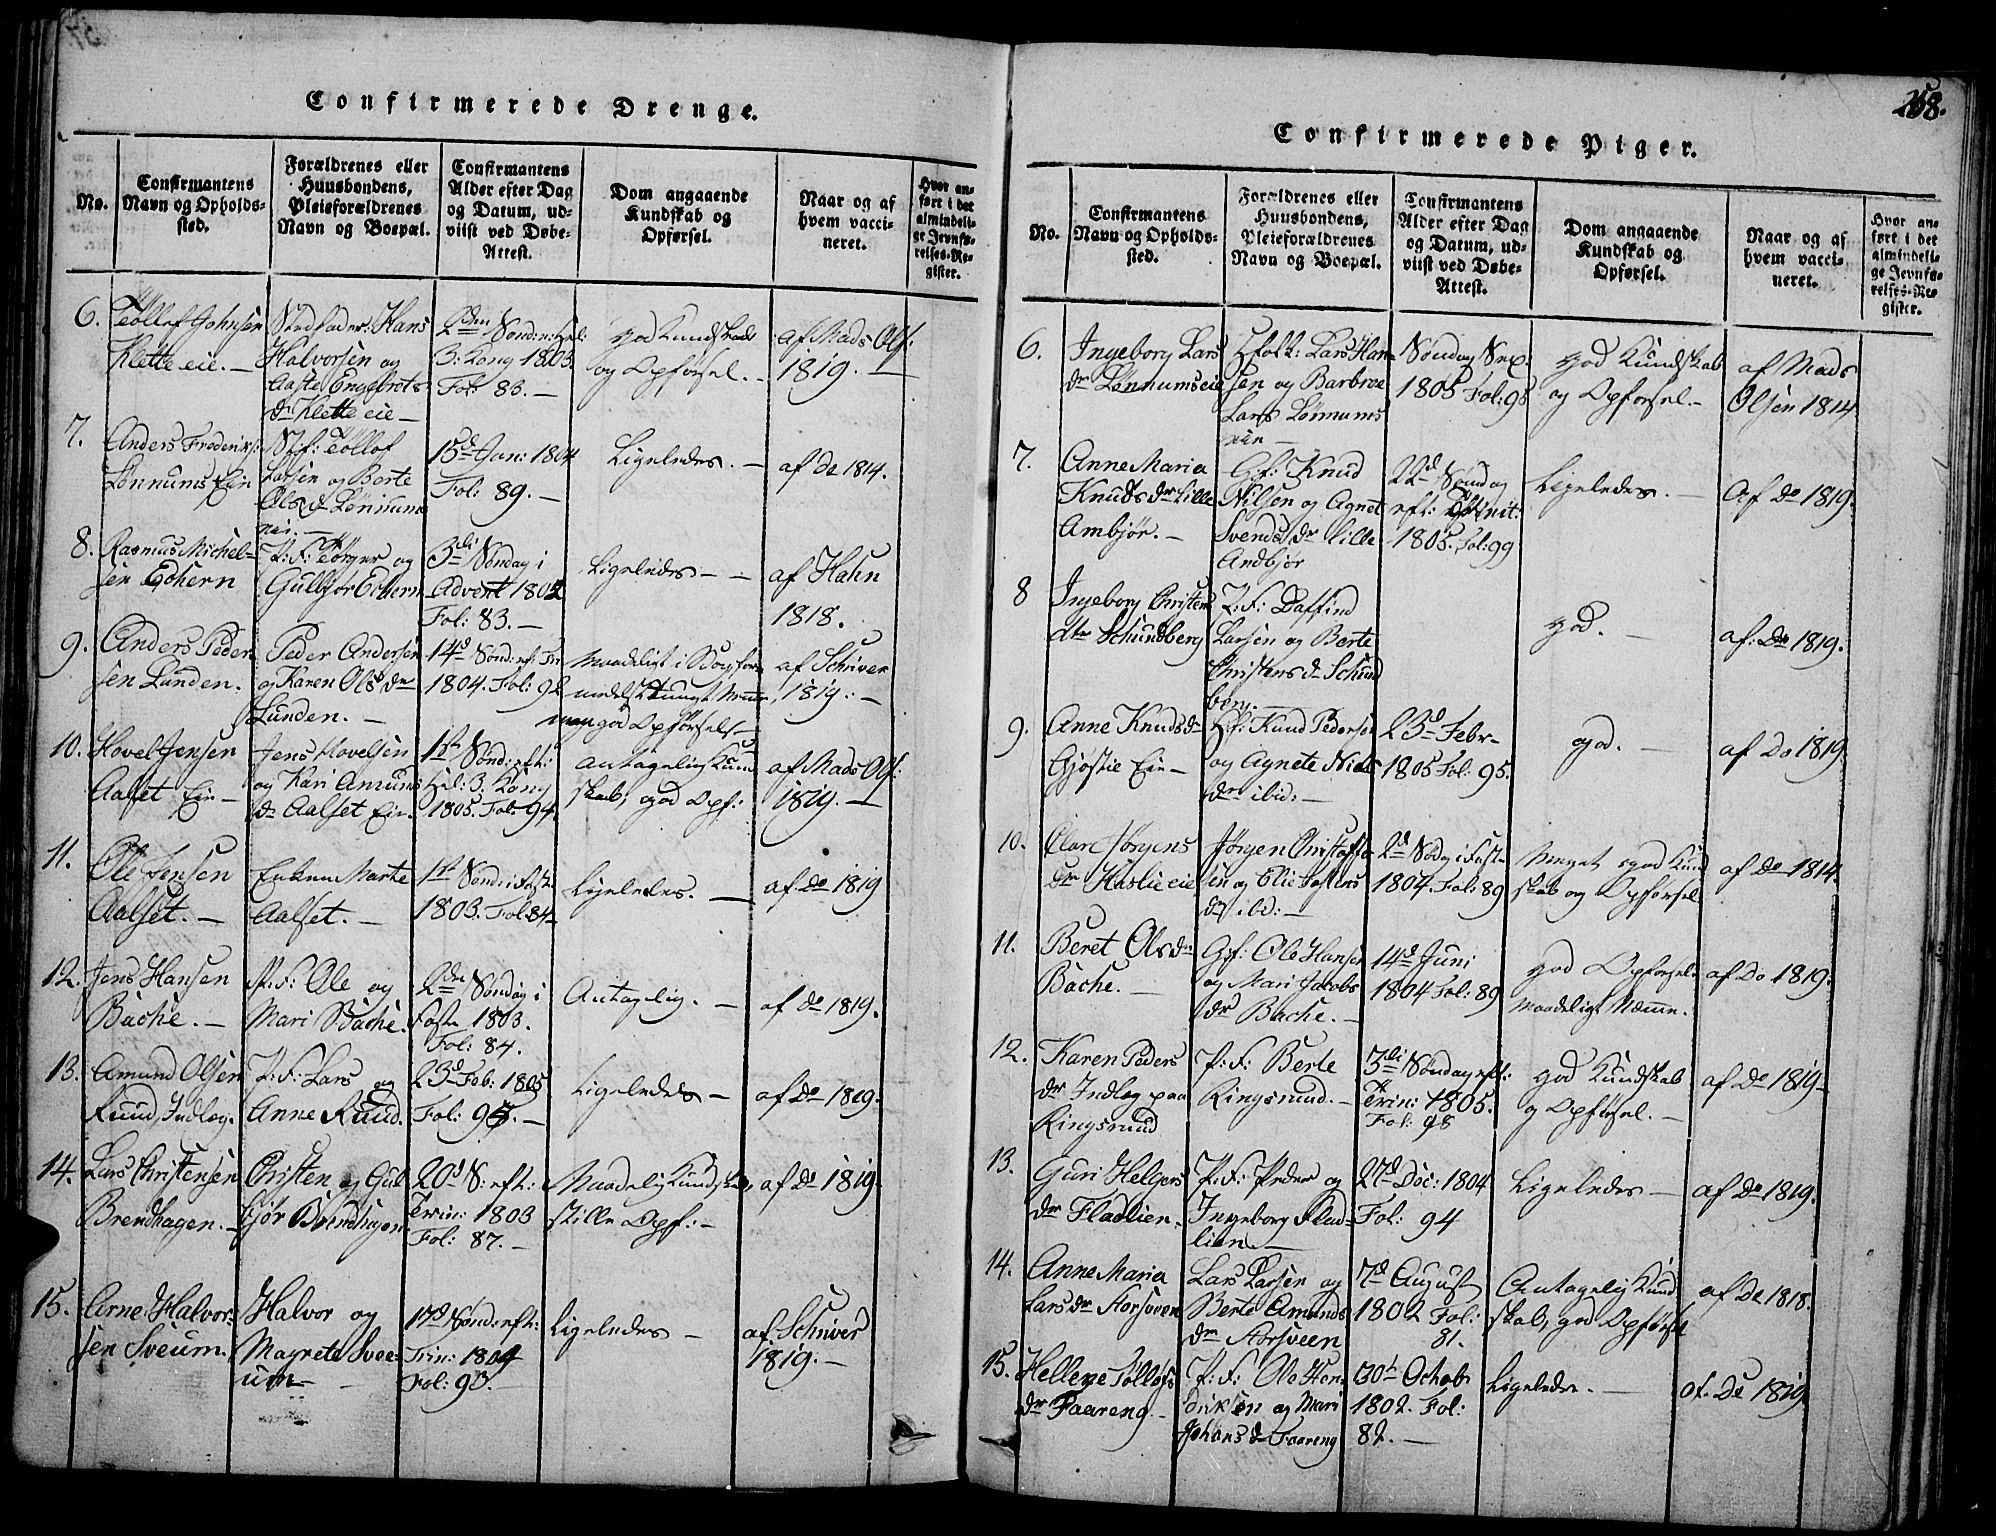 258.
Confirmerede Drenge.
No.
Confirmantens
Navn og Opholds-
sted.
Forældrenes eller
Huusbondens,
Pleieforældrenes
Navn og Boepæl.
Confirmantens
Alder efter Dag
og Datum, ud-
viist ved Døbe-
Attest.
Dom angaaende
Kundskab og
Opførsel.
Naar og af
hvem vacci-
neret.
Hvor an-
ført i det
almindeli-
ge Jevnfø-
relses-Re-
gister.
6.
Tollef Johnsen
Klette eie. —
Stedfader: Hans
Halvorsen og
Aaste Engebrets
dr Klette eie —
2den Sønd: n: Hel:
3: Kong 1803.
Fol: 83. —
god Kundskab
og Opførsel. —
af Mads Ols:
1819. —
7.
Anders Frederiks:
Lønnums Eie
St: f: Tollof
Larsen og Berte
Olsdr Lønnums
eie. —
15d Jan: 1804
Fol: 89. —
Ligeledes. —
af do 1814.
8.
Rasmus Michel-
sen Echern
P: F: Torger og
Gulbjor Echern
3di Søndag i
Advent 1802
Fol: 83. —
Ligeledes — —
af Hahn
1818.
9.
Anders Peder
sen Lunden.
Peder Andersen
og Karen Olsdr
Lunden. —
14d Sønd: ef: Tr
1804. Fol: 92
Maadeligt i Bog for
men god Opførsel —
af Schiver
1819. —
10.
Hovel Jensen
Aalset Eie —
Jens Hovelsen
og Kari Amunds
dr Aalset Eie.
1st Sønd: eft:
Hel: 3. Kong
1805. Fol: 94.
Antagelig Kund
skab, god Opf:
af Mads Ols:
1819. —
11.
Ole Jensen
Aalset. —
Enken Marte
Aalset. —
1st Sønd: i Fast
1803. Fol: 84
Ligeledes. —
af do 1819
12.
Jens Hansen
Bache. —
P: F: Ole og
Mari Bache.
2den Søndag i
Faste 1803.
Fol: 84.
Antagelig. —
af do 1819.
13.
Amund Olsen
Ruud Indlæg.
P: F: Lars og
Anne Ruud.
23d Feb: 1805
Fol: 95. —
Ligeledes —
af do 1819.
14.
Lars Christensen
Brendhagen. —
Christen og Gul
bjør Brendhagen
20d S: eft:
Trin: 1803
Fol: 87. —
Maadelig Kundskab,
stille Opf: —
af do 1819.
15.
Arne Halvor-
sen Sveum.
Halvor og
Magrete Svee-
um —
17d Sønd: eft:
Trin: 1804
Fol: 93.
Ligeledes —
af Schiver
1819. —
Confirmerede Piger.
No.
Confirmantens
Navn og Opholds-
sted.
Forældrenes eller
Huusbondens,
Pleieforældrenes
Navn og Boepæl.
Confirmantens
Alder efter Dag
og Datum, ud-
viist ved Døbe-
Attest.
Dom angaaende
Kundskab og
Opførsel.
Naar og af
hvem vacci-
neret.
Hvor an-
ført i det
almindeli-
ge Jevnfø-
relses-Re-
gister.
6.
Ingeborg Lars
dr Lønnumseie
Hfolk: Lars Han-
sen og Barbroe
Lars Lønnums
eie —
Søndag Sex:
1805 Fol: 95
god Kundskab
og Opførsel. —
af Mads
Olsen 1814
7.
Anne Maria
Knudsdr Lille
Ambjør. —
G: f: Knud
Nilsen og Agnet
Svendsdr Lille
Andbjør
22d Søndag
eft: Trinit:
1805. Fol: 99
Ligeledes. —
Af do 1819.
8
Ingeborg Christens
dtr Schundberg
P: F: Daffind
Larsen og Berte
Christensdr Schund
berg. —
god. —
af: Do 1819.
9.
Anne Knudsdr
Gjøstie Eie —
Hf: Knud Pedersen
og Agnete Niels
dr ibid: —
23d Febr-
1805 Fol: 95.
god. —
af Do 1819.
10.
Olave Jørgens
dr Haslie eie
Jørgen Christoffer
sen og Elie Tostens
dr ibid: —
2d Sødg i Fast-
1804. Fol: 89
Meget god Kund
skab og Opførsel
af do 1814.
11.
Beret Olsdr
Bache. —
G: f: Ole Hansen
og Mari Jacobs
dr Bache. —
14d Juni
1804 Fol: 89
god Opførsel
maadeligt Nemme.
af Do 1819.
12.
Karen Peders
dr Indlæg paa
Ringsruud
P: F: Berte
Ringsruud. —
3di Søndag eft:
Trin: 1805.
Fol: 98
god Kundskab
og Opførsel. —
af Do 1819 —
13.
Guri Helges
dr Fladlien.
P: F: Peder og
Ingeborg Flad-
lien —
27d Dec: 1804
Fol: 94
Ligeledes —
af do 1819.
14.
Anne Maria
Larsdr Storsveen
Lars Larsen og
Berte Amunds
dr Storsveen
7d August
1802 Fol:
81.
Antagelig Kund
skab, god Opførsel
af Do 1818.
15.
Hellene Tollofs
dr Faareng —
P: F: Ole Hen
dirksen og Mari
Johansdr Faareng
30te Octob
1802. Fol:
82. —
Ligeledes. —
af. Do 1819